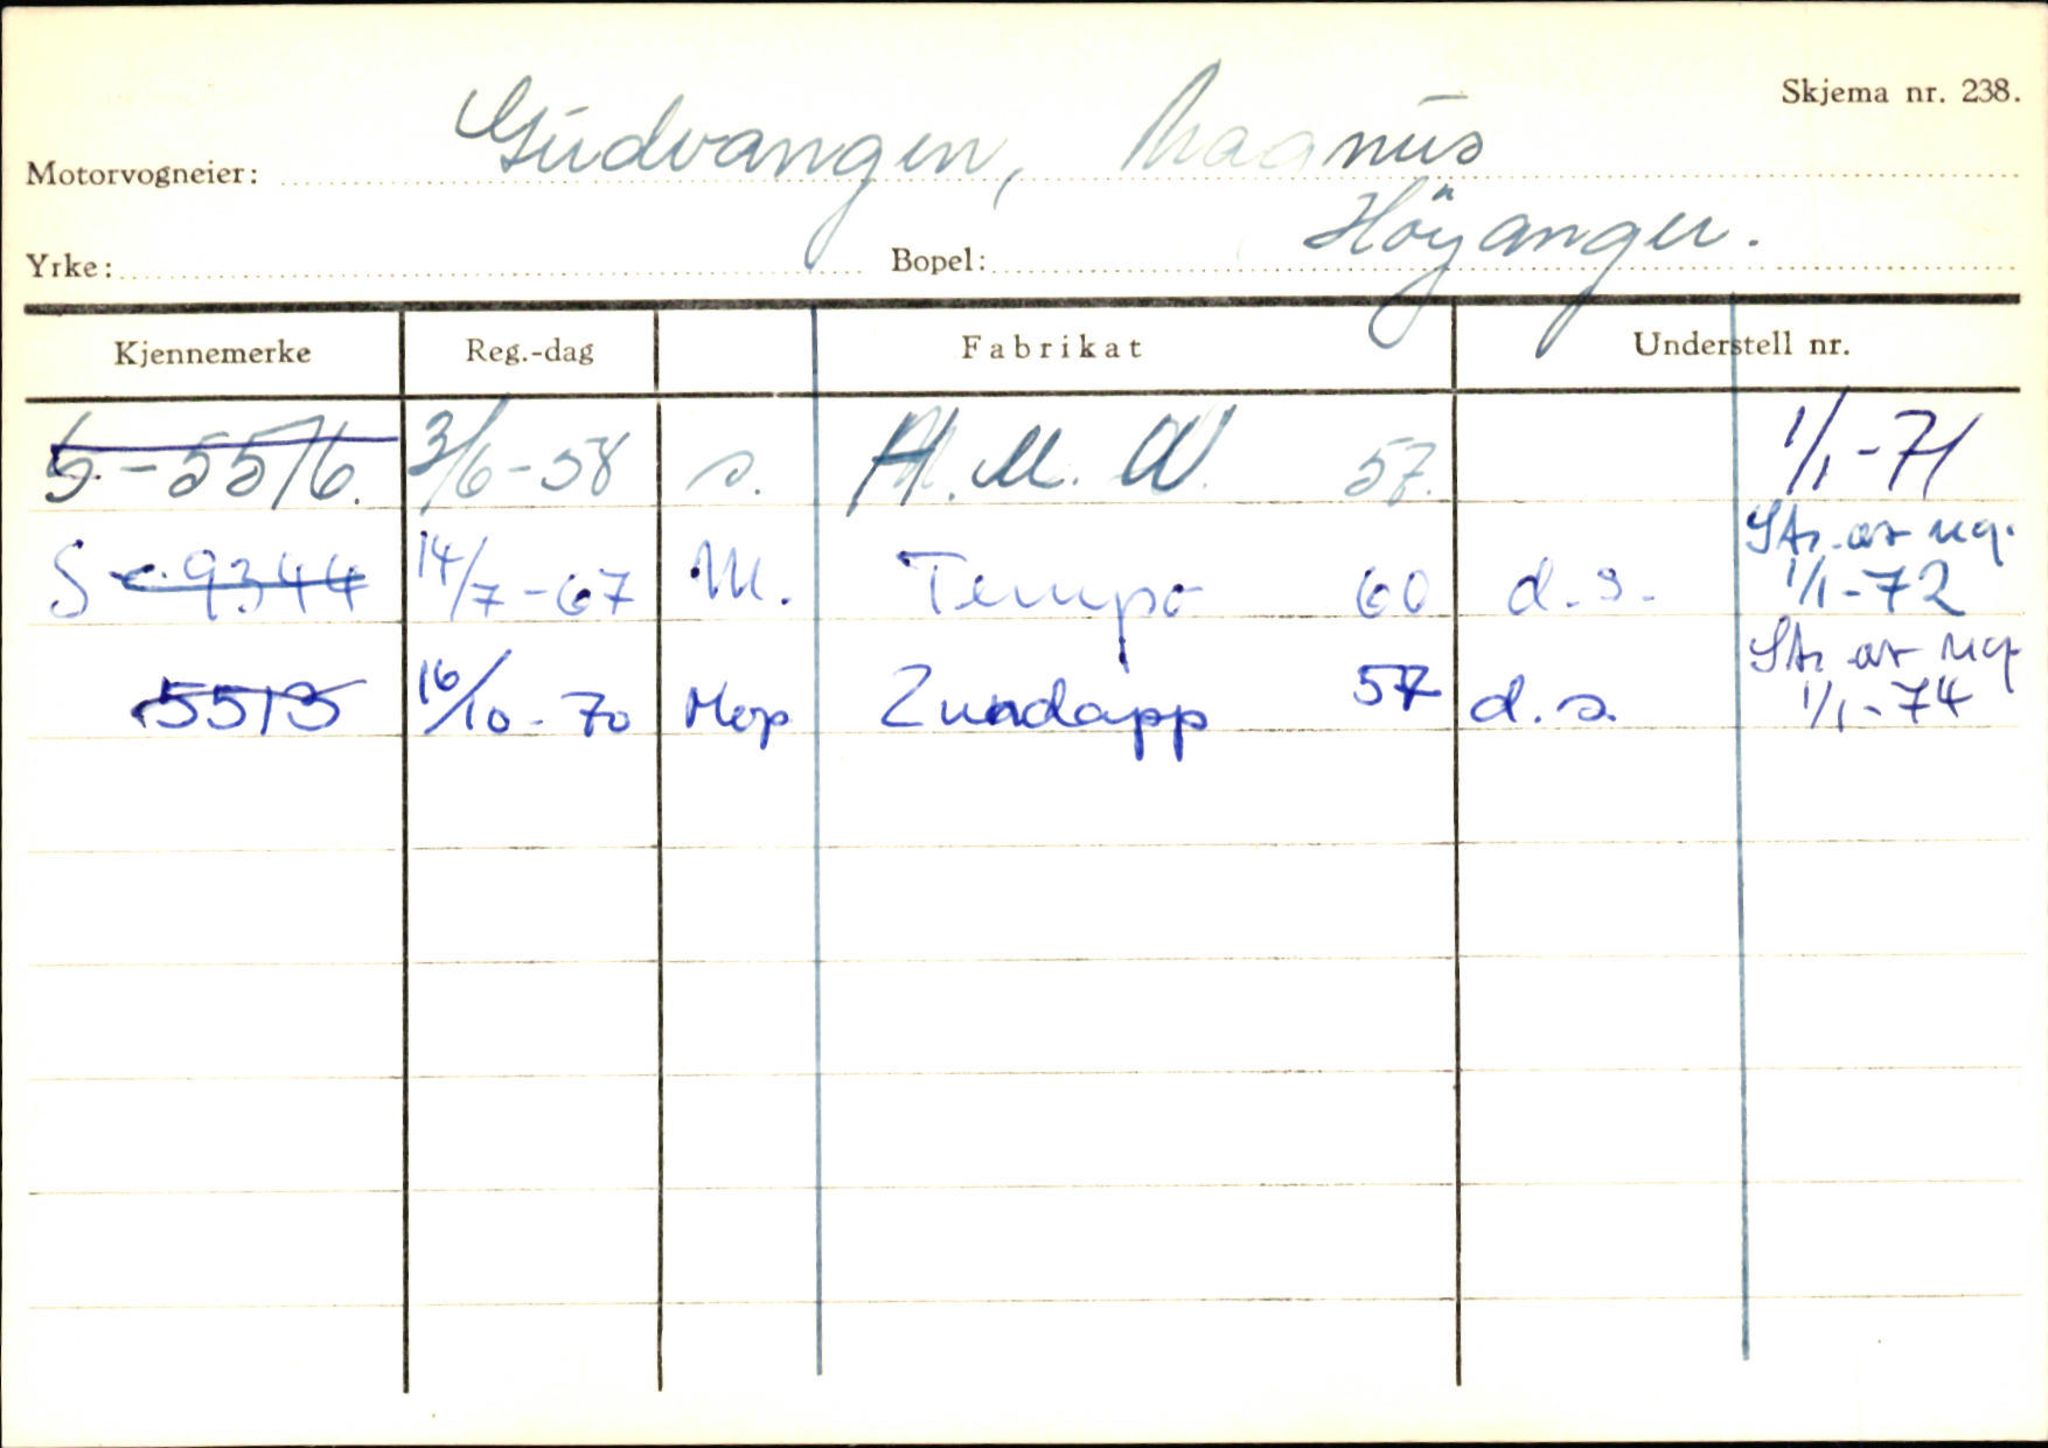 Skjema nr. 238.
Motorvogneier: Gudvangen, Magnus
Yrke: Bopel: Höyanger.
Kjennemerke Reg.-dag Fabrikat Understell nr.
S.-5576. 3/6-58 s. H.M.W. 57. 1/1-71
S 9344 14/7-67 M. Tempo 60 d.s. Str. av reg. 1/1-72
5513 16/10-70 Mop Zundapp 57 d.s. Str av reg 1/1-74